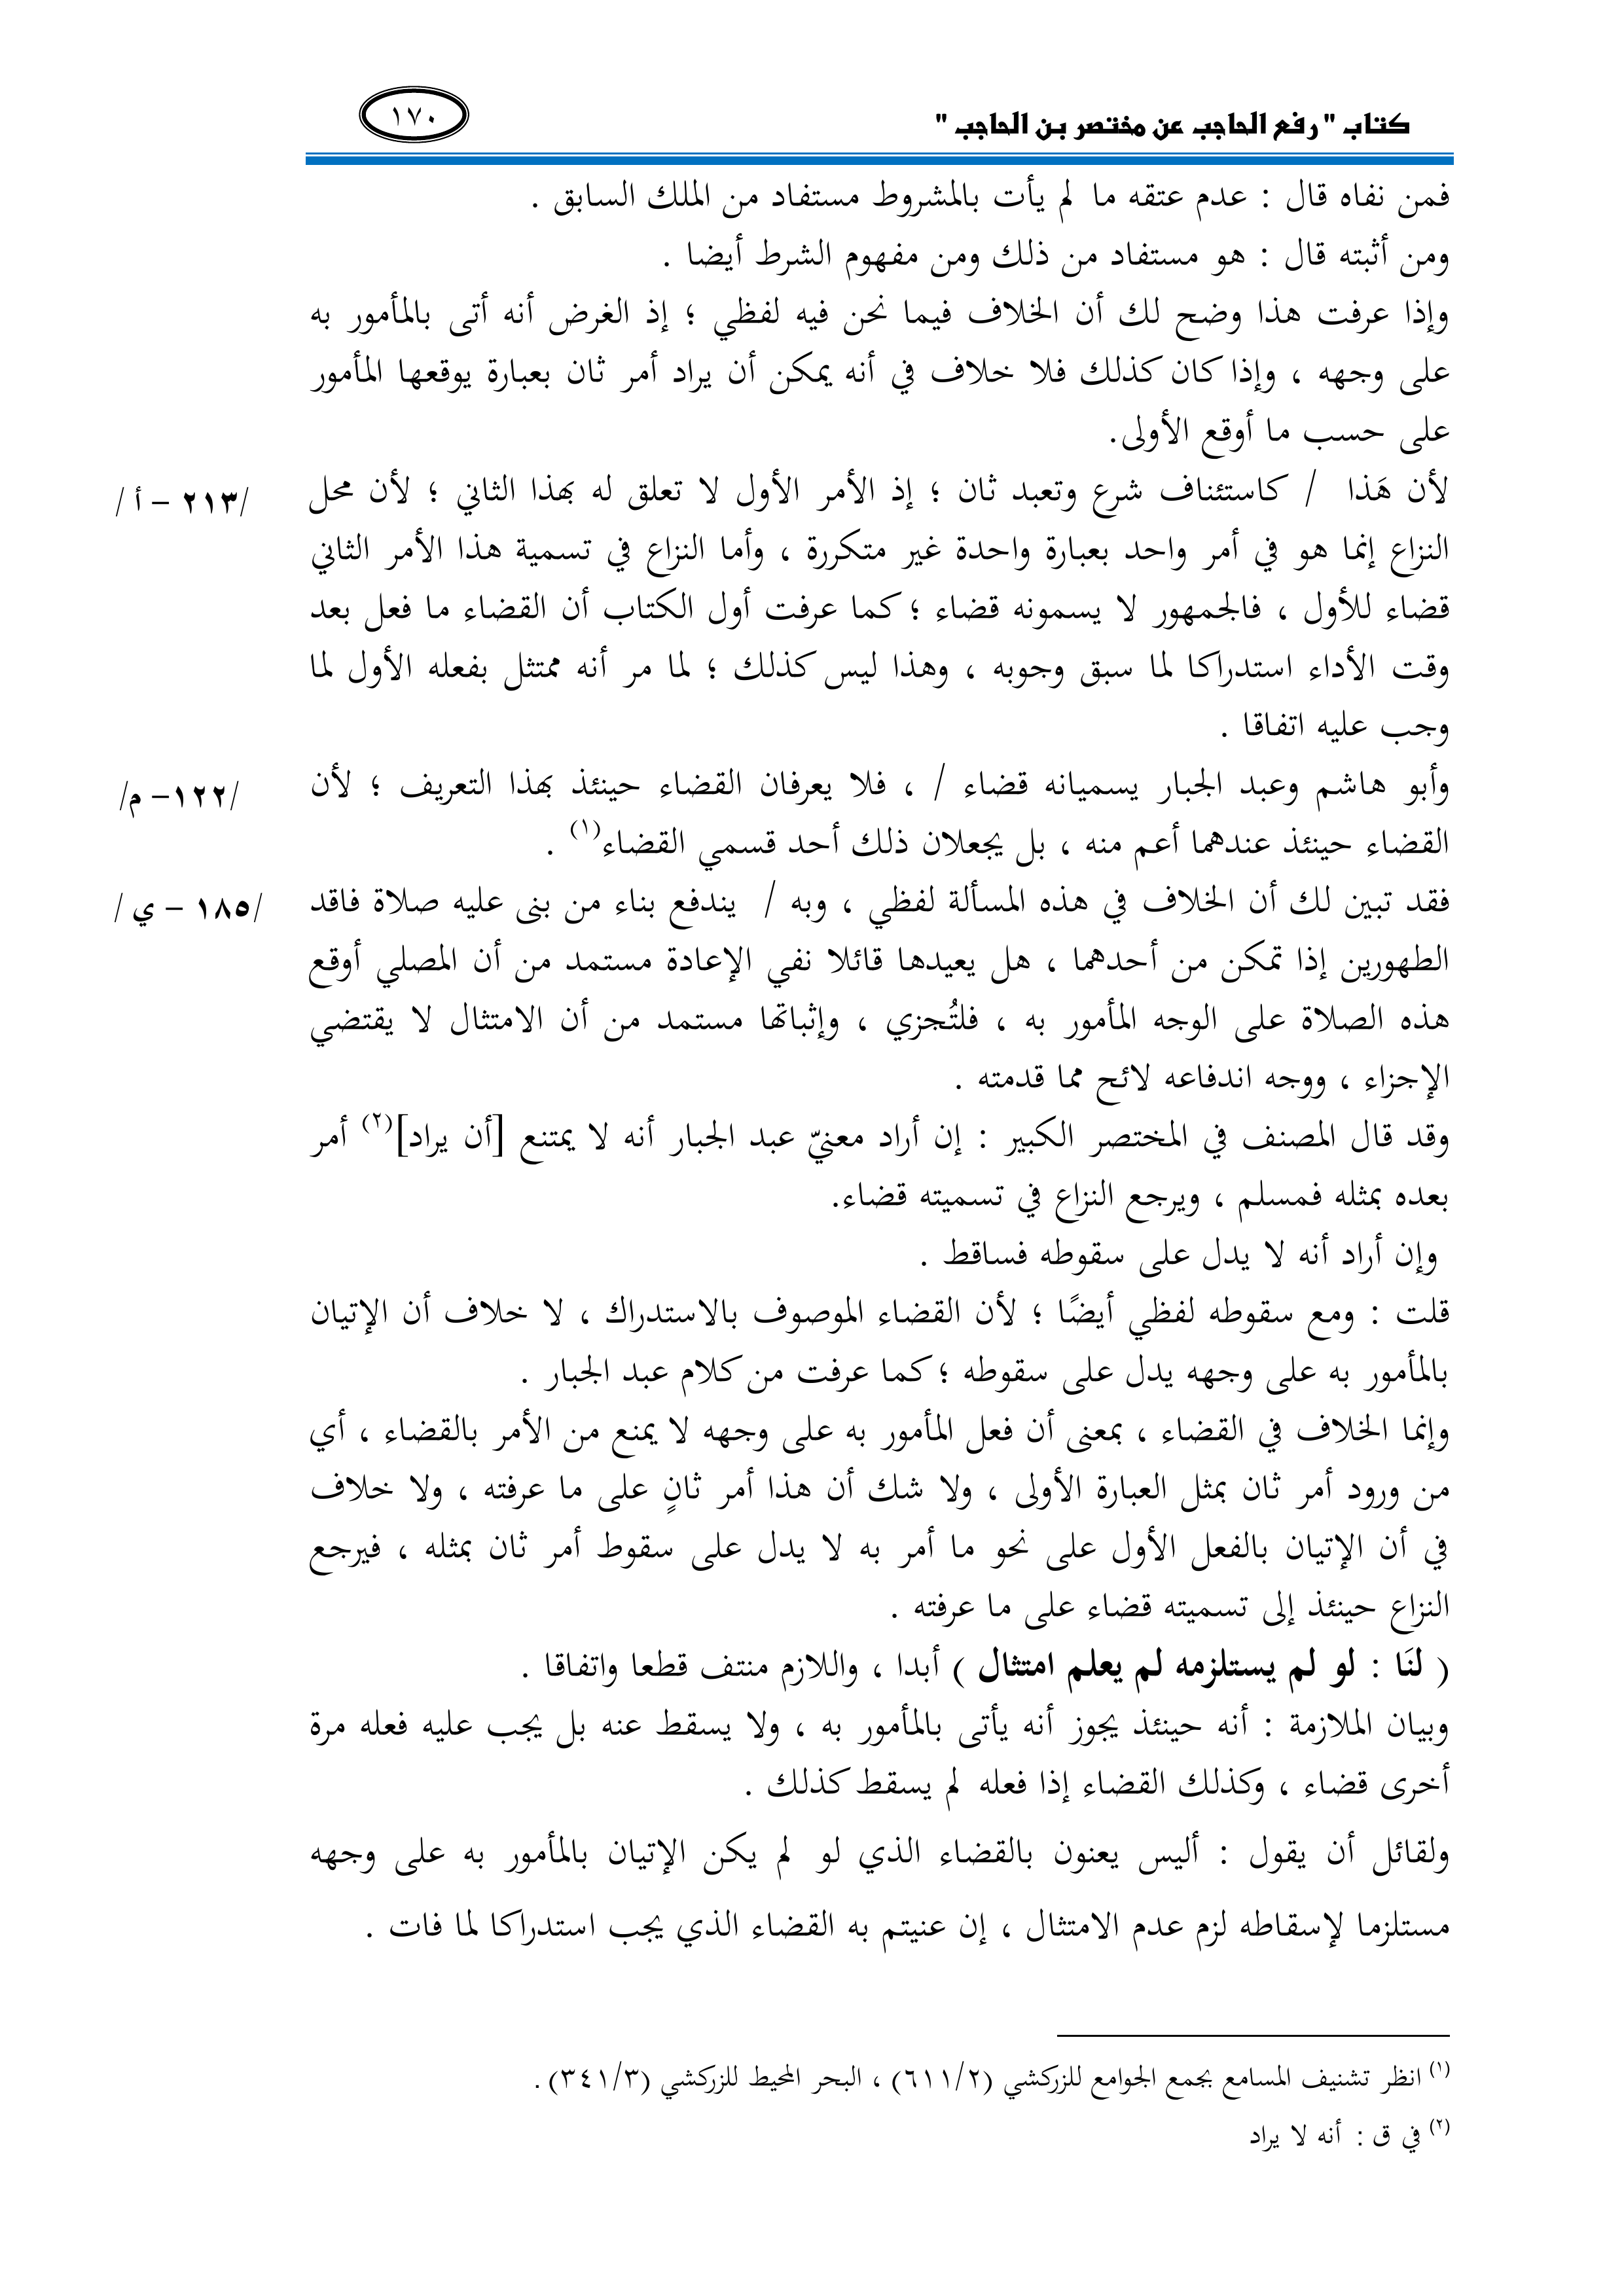 كتاب " رفع الحاجب عن مختصر بن الحاجب "
١٧٠
فمن نفاه قال : عدم عتقه ما لم يأت بالمشروط مستفاد من الملك السابق .
ومن أثبته قال : هو مستفاد من ذلك ومن مفهوم الشرط أيضا .
وإذا عرفت هذا وضح لك أن الخلاف فيما نحن فيه لفظي ؛ إذ الغرض أنه أتى بالمأمور به
على وجهه ، وإذا كان كذلك فلا خلاف في أنه يمكن أن يراد أمر ثان بعبارة يوقعها المأمور
على حسب ما أوقع الأولى.
لأن هَذا / كاستئناف شرع وتعبد ثان ؛ إذ الأمر الأول لا تعلق له بهذا الثاني ؛ لأن محل
/٢١٣ – أ /
النزاع إنما هو في أمر واحد بعبارة واحدة غير متكررة ، وأما النزاع في تسمية هذا الأمر الثاني
قضاء للأول ، فالجمهور لا يسمونه قضاء ؛ كما عرفت أول الكتاب أن القضاء ما فعل بعد
وقت الأداء استدراكا لما سبق وجوبه ، وهذا ليس كذلك ؛ لما مر أنه ممتثل بفعله الأول لما
وجب عليه اتفاقا .
وأبو هاشم وعبد الجبار يسميانه قضاء / ، فلا يعرفان القضاء حينئذ بهذا التعريف ؛ لأن
/١٢٢– م/
القضاء حينئذ عندهما أعم منه ، بل يجعلان ذلك أحد قسمي القضاء(١) .
فقد تبين لك أن الخلاف في هذه المسألة لفظي ، وبه / يندفع بناء من بنى عليه صلاة فاقد
/١٨٥ – ي /
الطهورين إذا تمكن من أحدهما ، هل يعيدها قائلا نفي الإعادة مستمد من أن المصلي أوقع
هذه الصلاة على الوجه المأمور به ، فلتُجزي ، وإثباتها مستمد من أن الامتثال لا يقتضي
الإجزاء ، ووجه اندفاعه لائح مما قدمته .
وقد قال المصنف في المختصر الكبير : إن أراد معنيّ عبد الجبار أنه لا يمتنع [أن يراد](٢) أمر
بعده بمثله فمسلم ، ويرجع النزاع في تسميته قضاء.
وإن أراد أنه لا يدل على سقوطه فساقط .
قلت : ومع سقوطه لفظي أيضًا ؛ لأن القضاء الموصوف بالاستدراك ، لا خلاف أن الإتيان
بالمأمور به على وجهه يدل على سقوطه ؛ كما عرفت من كلام عبد الجبار .
وإنما الخلاف في القضاء ، بمعنى أن فعل المأمور به على وجهه لا يمنع من الأمر بالقضاء ، أي
من ورود أمر ثان بمثل العبارة الأولى ، ولا شك أن هذا أمر ثانٍ على ما عرفته ، ولا خلاف
في أن الإتيان بالفعل الأول على نحو ما أمر به لا يدل على سقوط أمر ثان بمثله ، فيرجع
النزاع حينئذ إلى تسميته قضاء على ما عرفته .
( لنَا : لو لم يستلزمه لم يعلم امتثال ) أبدا ، واللازم منتف قطعا واتفاقا .
وبيان الملازمة : أنه حينئذ يجوز أنه يأتى بالمأمور به ، ولا يسقط عنه بل يجب عليه فعله مرة
أخرى قضاء ، وكذلك القضاء إذا فعله لم يسقط كذلك .
ولقائل أن يقول : أليس يعنون بالقضاء الذي لو لم يكن الإتيان بالمأمور به على وجهه
مستلزما لإسقاطه لزم عدم الامتثال ، إن عنيتم به القضاء الذي يجب استدراكا لما فات .
(١) انظر تشنيف المسامع بجمع الجوامع للزركشي (٦١١/٢) ، البحر المحيط للزركشي (٣٤١/٣) .
(٢) في ق : أنه لا يراد